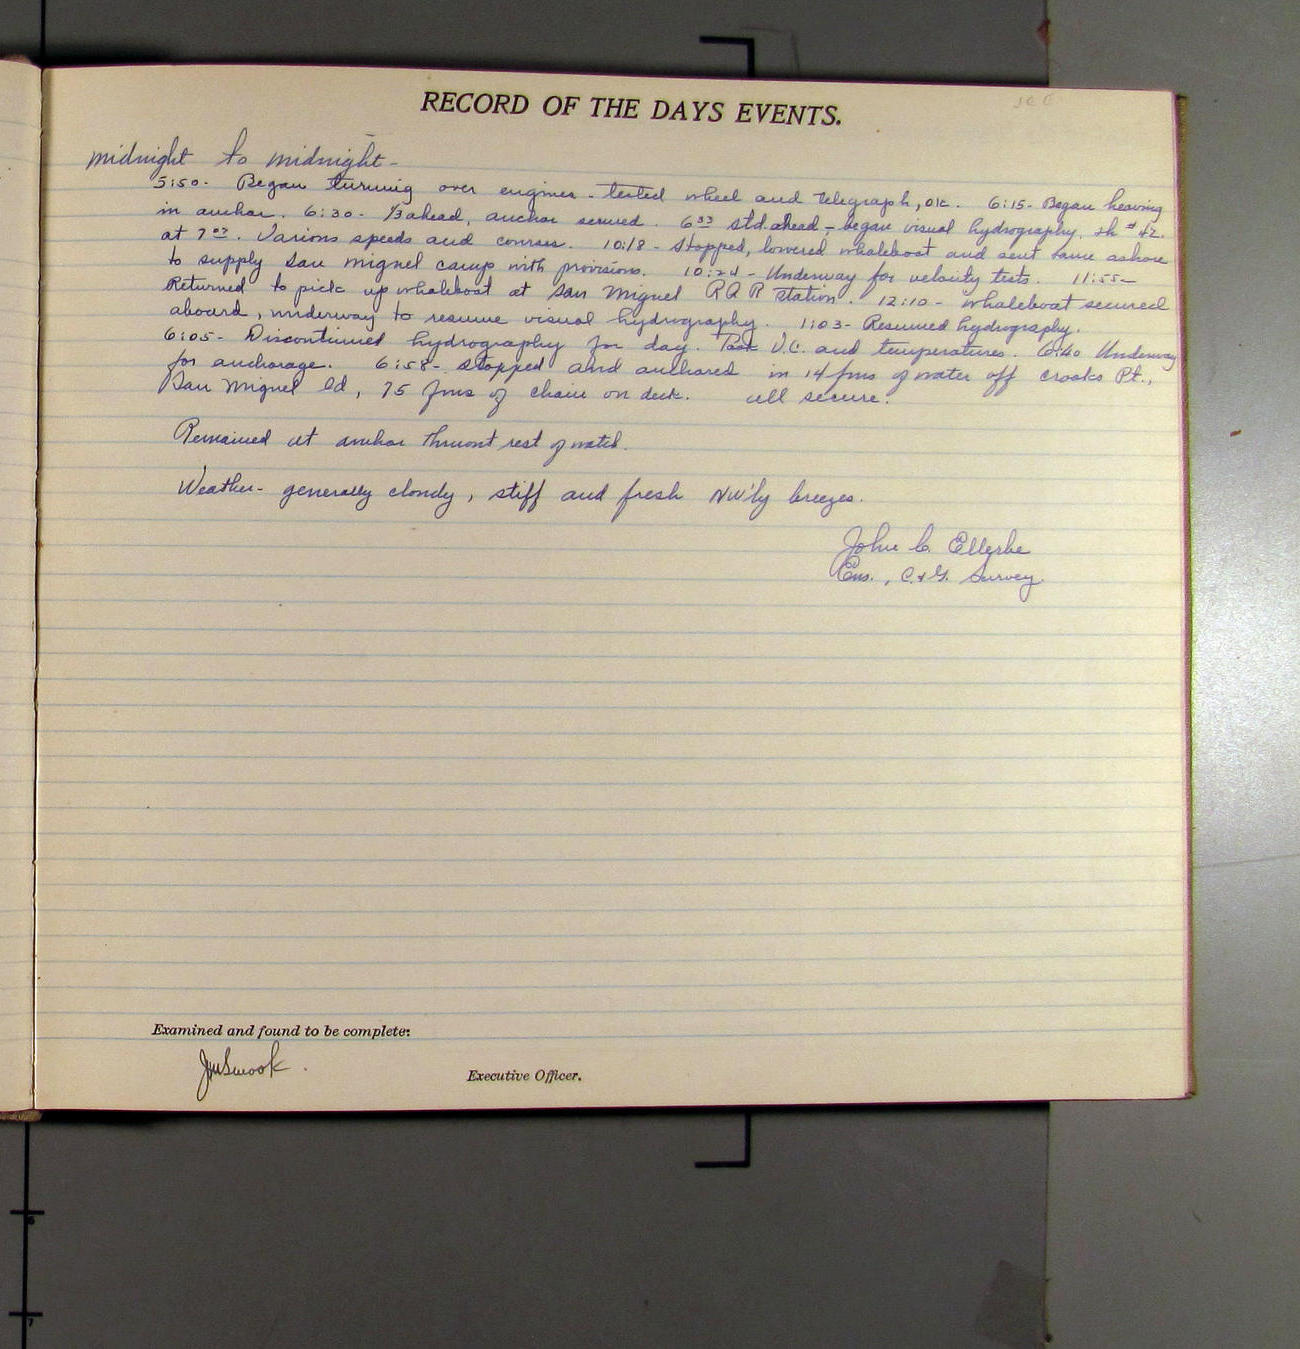 JCE
RECORD OF THE DAYS EVENTS.
midnight to midnight-
5:50- Began turning over engines - tested wheel and telegraph, OK. 6:15- Began heaving
in anchor. 6:30- 1/3 ahead, anchor secured. 6 33 std. ahead - began visual hydrography, sh # 42
at 7 07. Various speeds and courses. 10:18- stopped, lowered whaleboat and sent same ashore
to supply San Miguel camp with provisions. 10:24- Underway for velocity tests. 11:55-
Returned to pick up whaleboat at San Miguel RAR station. 12:10- whaleboat secured
aboard, underway to resume visual hydrography. 1:03- Resumed hydrography.
6:05- Discontinued hydrography for day. Took V.C. and temperatures. 6:40 Underway
for anchorage. 6:58- stopped and anchored in 14 fms of water off Crooks Pt.,
San Miguel Id, 75 fms of chain on deck. all secure.
Remained at anchor thruout rest of watch.
Weather- generally cloudy, stiff and fresh NW'ly breezes.
John C. Ellerbe
Ens., C.&G. Survey.
Examined and found to be complete:
JMSmook.
Executive Officer.
6
7